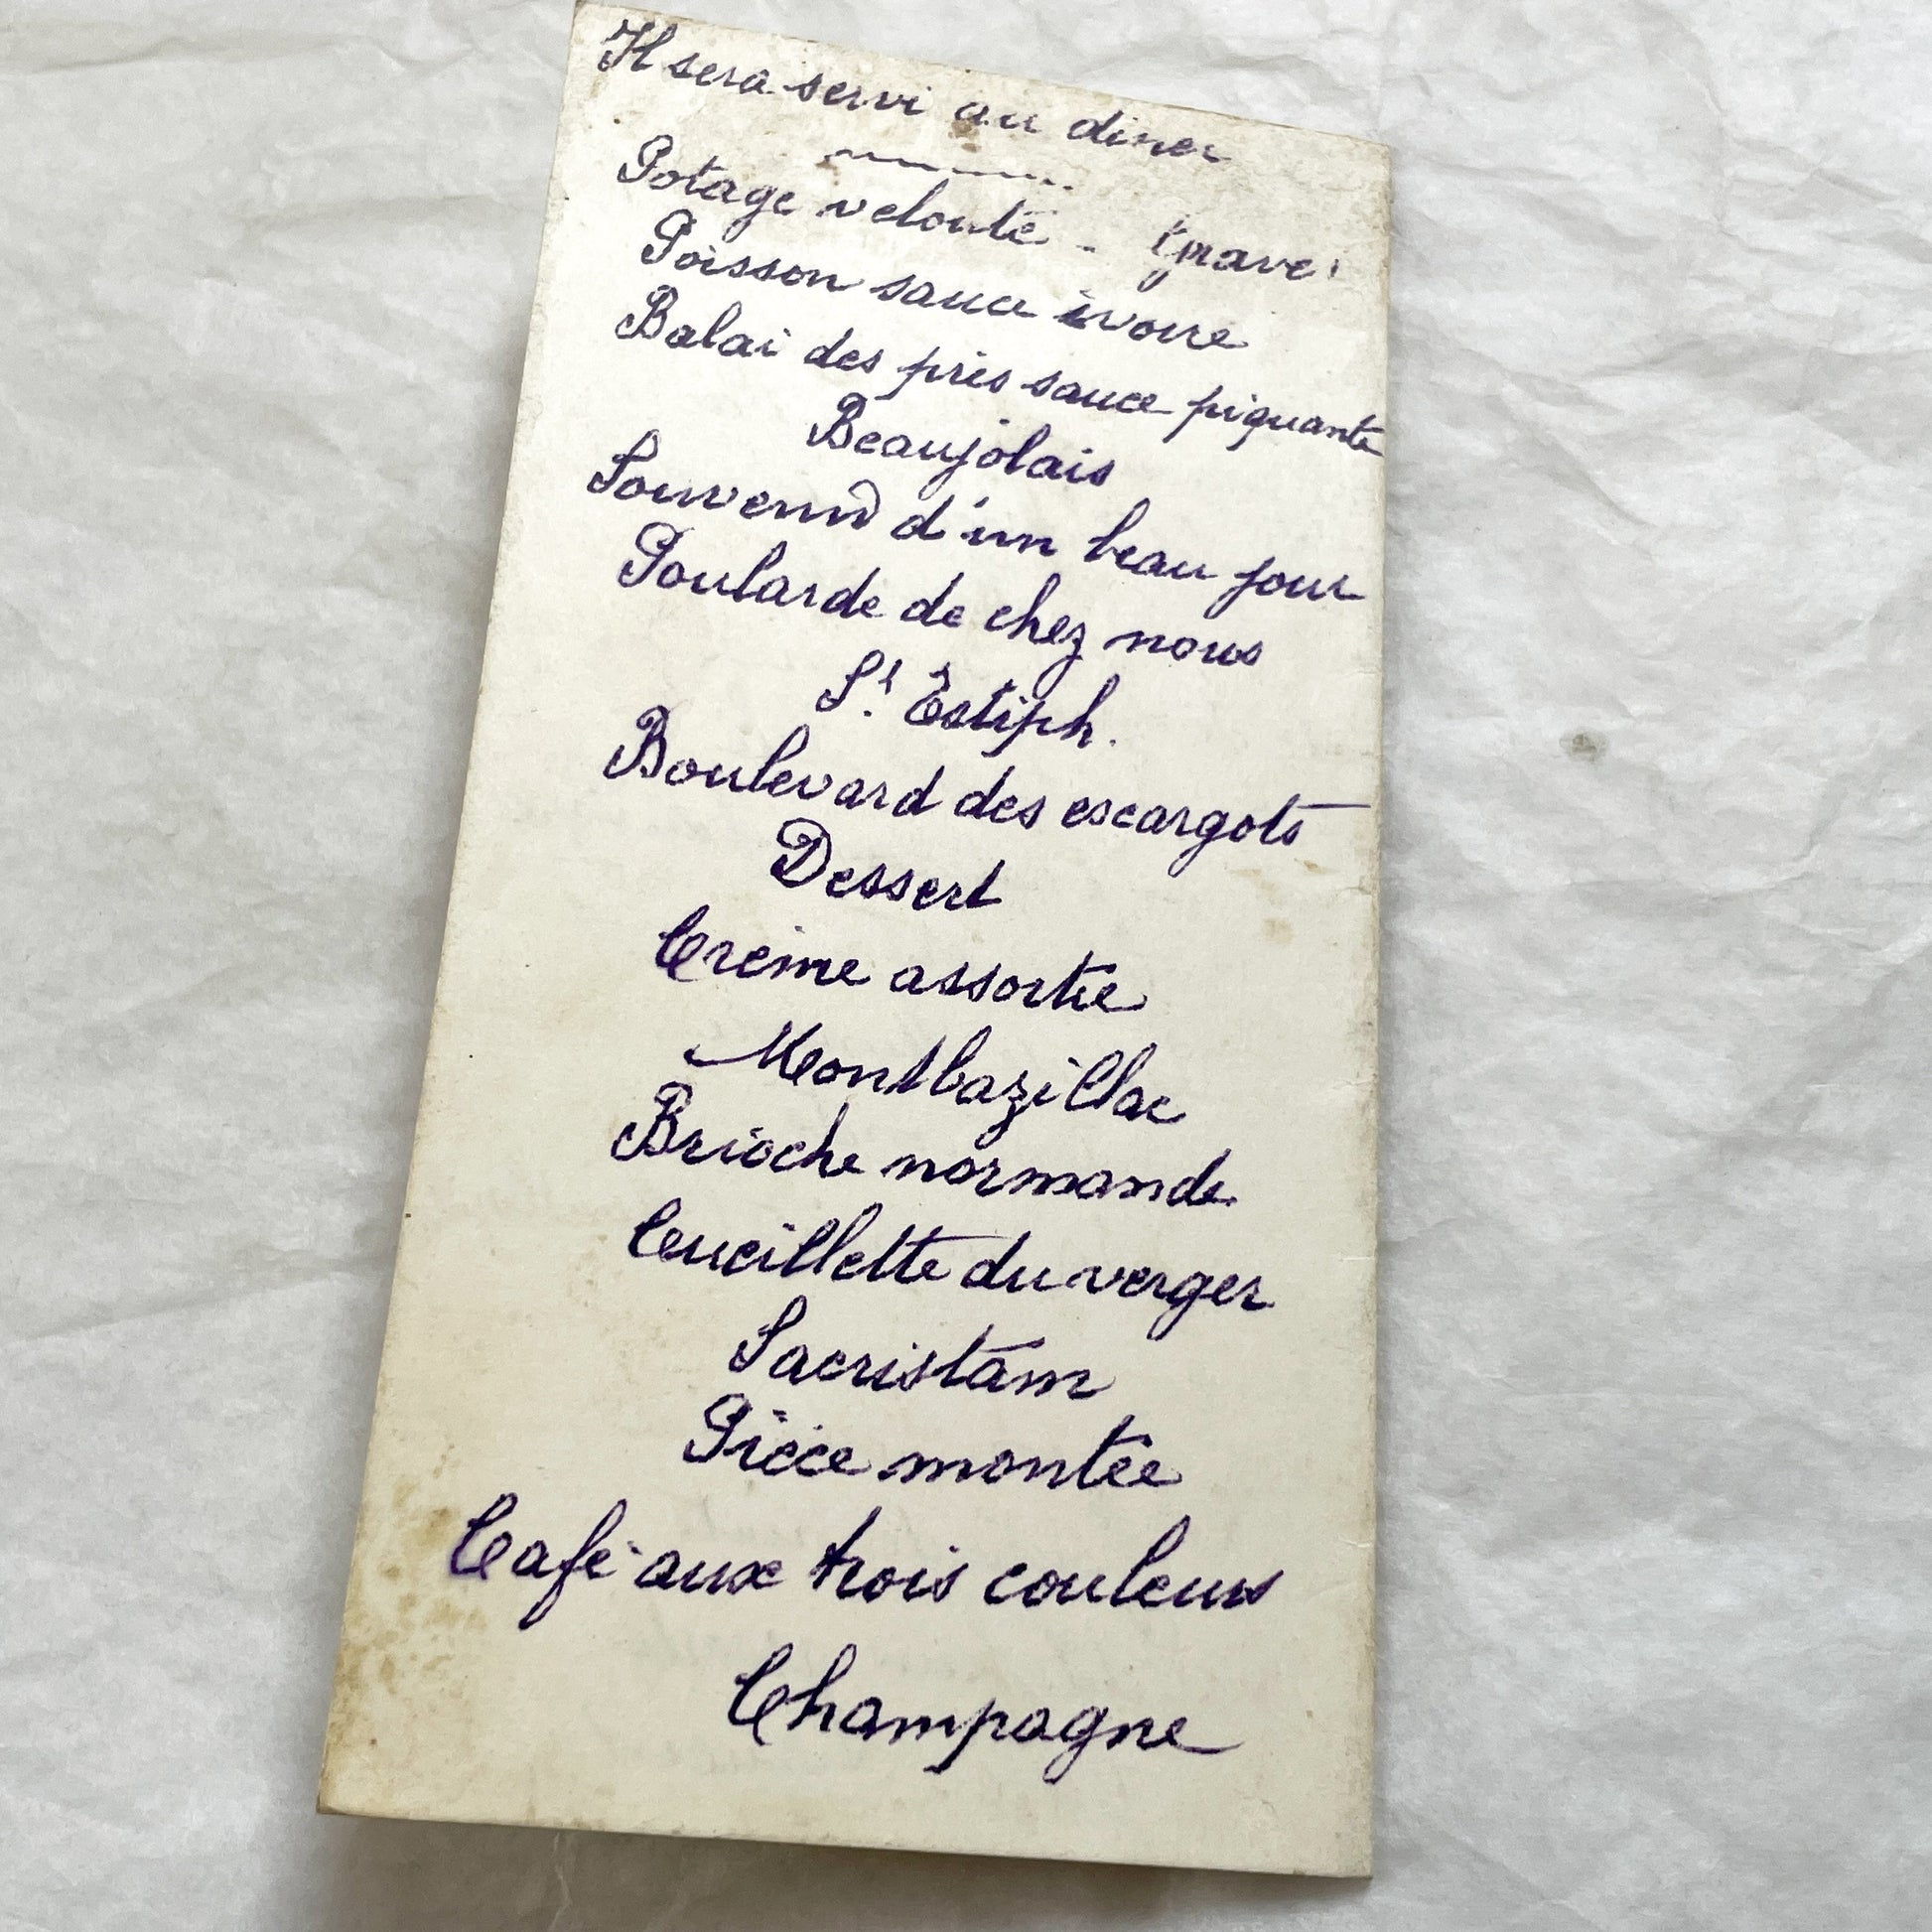 Il sera servi au diner
Potage velouté - Grave
Poisson sauce ivoire
Balai des près sauce piquante
Beaujolais
Souvenir d'un beau jour
Poularde de chez nous
St. Estiph.
Boulevard des escargots
Dessert
Crème assortie
Montbazillac
Brioche normande
Cueillette du verger
Sacristam
Pièce montée
Café aux trois couleurs
Champagne